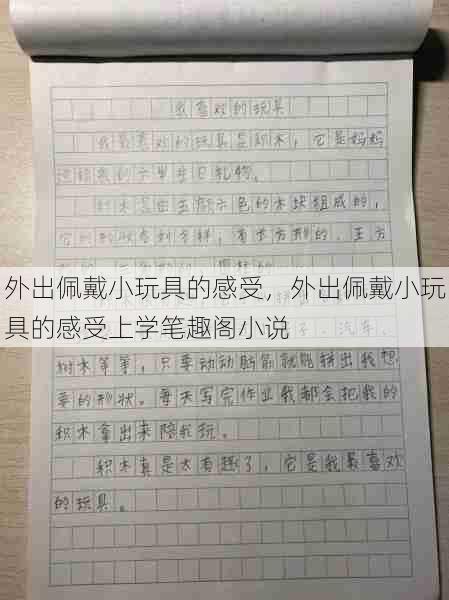 我喜欢的玩具
我最喜欢的玩具是积木，它是妈妈
送给我的六岁生日礼物。
积木是由五颜六色的木块组成的，
它的形状各式各样，有长方形的、正方
外出佩戴小玩具的感受，外出佩戴小玩
具的感受上学笔趣阁小说
子、汽车、
树木等等，只要动动脑筋就能拼出我想
要的形状。每天写完作业我都会把我的
积木拿出来陪我玩。
积木真是太有趣了，它是我最喜欢
的玩具。